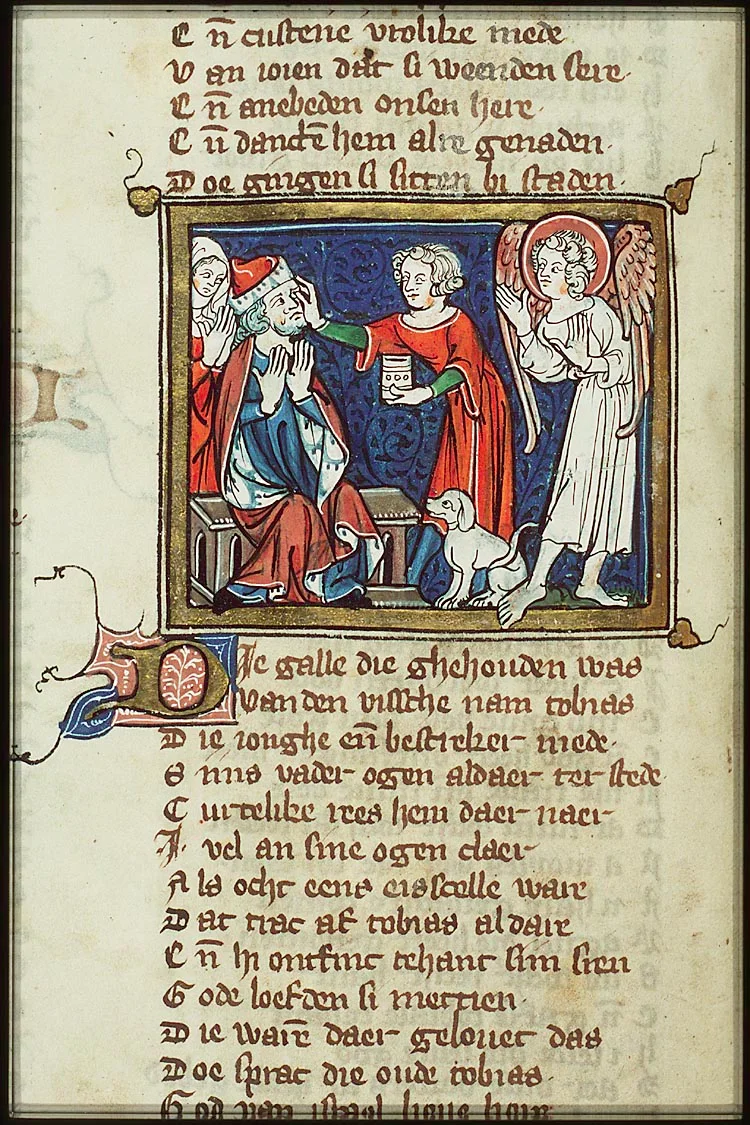 En̄ custene vrolike mede
Van ioien dat si weenden sere
En̄ anebeden onsen here
En̄ danctē hem alre genaden
Doe gingen si sitten bi staden
Die galle die ghehouden was
Van den vissche nam tobias
Die ionghe en̄ bestreker mede
Sijns vader ogen aldaer ter stede
Curtelike rees hem daer naer
I. vel an sine ogen claer
Als ocht eens eisscelle ware
Dat trac af tobias aldare
En̄ hi ontfinc tehant sijn sien
Gode loefden si mettien
Die warē daer gelovet das
Doe sprac die oude tobias
God van israel lieve here